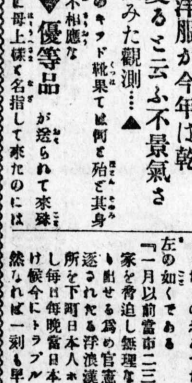 洋服が今年は乾
ると云ふ不景氣さ
みた觀測…▲
のキッド靴果ては何と殆ど其身
不相應な
▼優等品 が送られて來殊
に母上樣と名指して來たのには
左の如くである
『一月以前當市二三
家を脅迫し無理な
も出せる爲め官憲
逐されたる浮浪漢
所を下町日本人ホ
し每は每晚當日本
け候今にトラブル
然なれば一刻も早